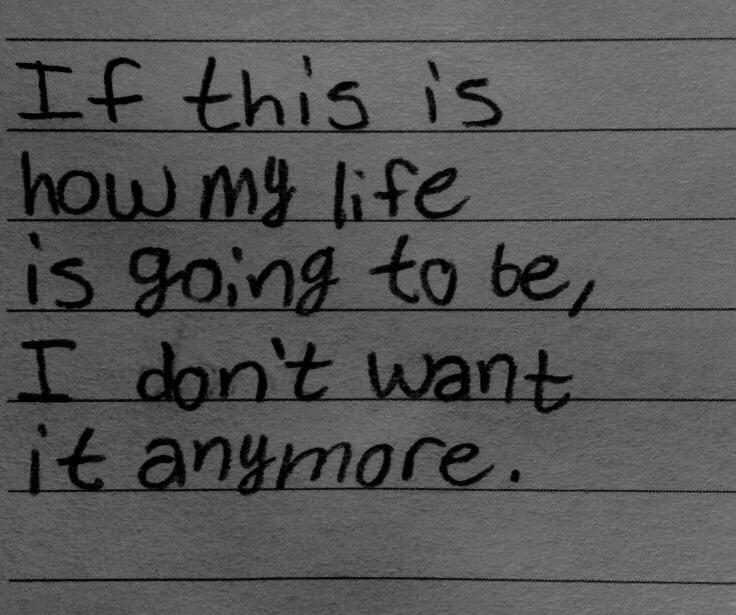 If this is
how my life
is going to be,
I don't want
it anymore.